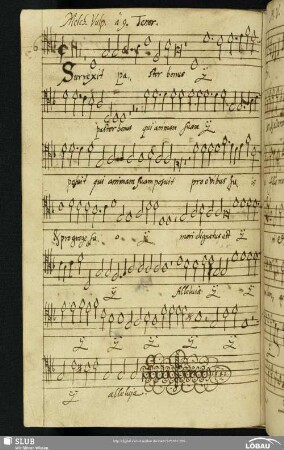 Melch. Vulp. à 9. Tenor.
6
Surrexit pastor bonus ij
pastor bonus qui animam suam ij
posuit qui animam suam posuit pro ovibus su is
& pro grege su o ij mori dignatus est ij
ij ij Alleluia ij ij
ij ij ij ij ij
ij alleluja
SLUB
Wir führen Wissen.
LÖBAU